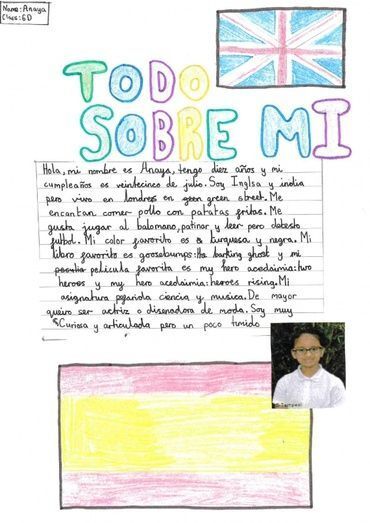 Name: Anaya
Class: 6D
TODO
SOBRE MI
Hola, mi nombre es Anaya, tengo diez años y mi
cumpleaños es veintecinco de julio. Soy Inglsa y india
pero vivo en londres en green street. Me
encantan comer pollo con patatas fritas. Me
gusta jugar al balomano, patinar y leer pero detesto
futbol. Mi color favorito es turquesa y negra. Mi
libro favorito es goosebumps: the barking ghost y mi
pelicula favorita es my hero acedaimia: two
heroes y my hero acedaimia: heroes rising. Mi
asignatura pejarida ciencia y musica. De mayor
queiro ser actriz o disenadora de moda. Soy muy
Curiosa y articulada pero un poco timido